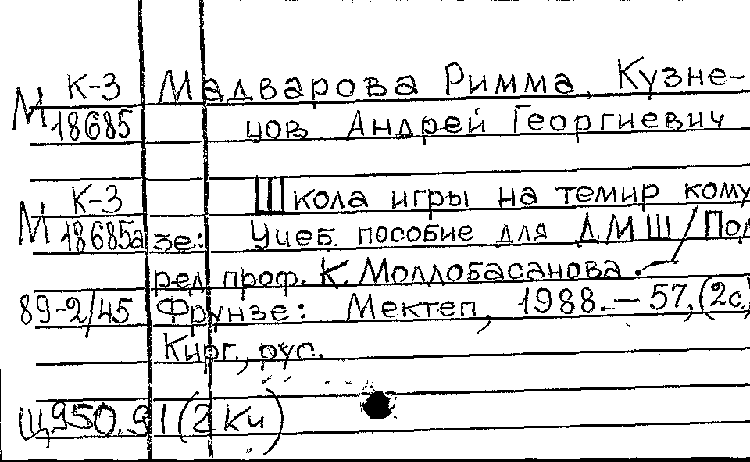 К-3 Мадварова Римма, Кузне-
М 18685 цов Андрей Георгиевич
К-3 Школа игры на темир кому
М 18685а зе: Учеб. пособие для ДМШ / Под
ред. проф. К. Молдобасанова. -
89-2/45 Фрунзе: Мектеп, 1988. - 57, (2с
Кирг., рус.
Щ950.91(2Ки)